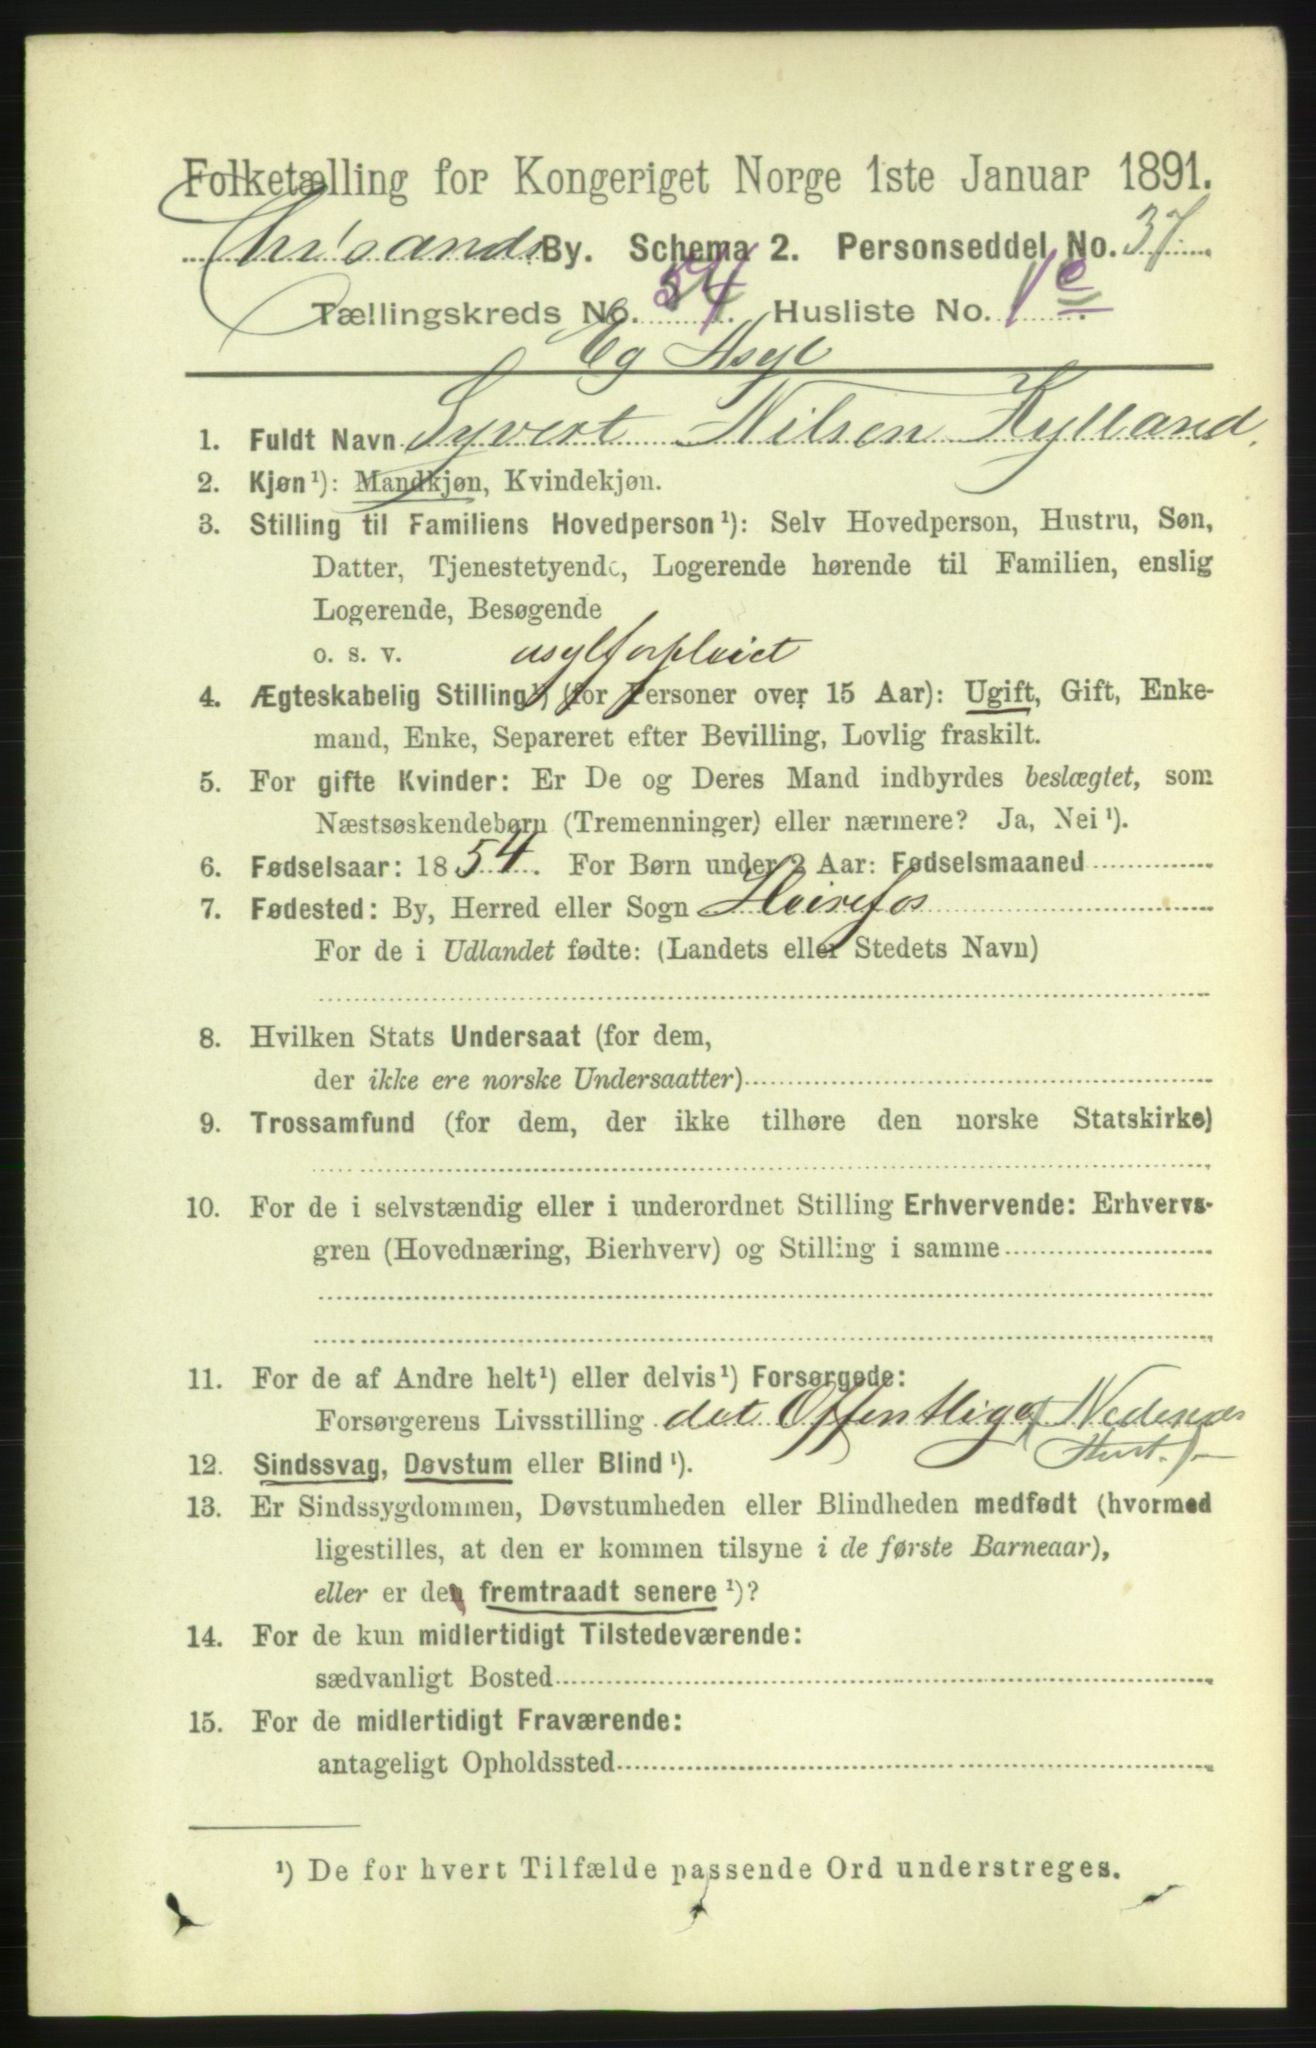 Folketælling for Kongeriget Norge 1ste Januar 1891.
Chr'sands By. Schema 2. Personseddel No. 37
Tællingskreds No. 54. Husliste No. 1c
Eg Asyl
1. Fuldt Navn Syvert Nilsen Kylland.
2. Kjøn¹): Mandkjøn, Kvindekjøn.
3. Stilling til Familiens Hovedperson¹): Selv Hovedperson, Hustru, Søn,
Datter, Tjenestetyende, Logerende hørende til Familien, enslig
Logerende, Besøgende
o. s. v. asylforpleiet
4. Ægteskabelig Stilling¹) (for Personer over 15 Aar): Ugift, Gift, Enke-
mand, Enke, Separeret efter Bevilling, Lovlig fraskilt.
5. For gifte Kvinder: Er De og Deres Mand indbyrdes beslægtet, som
Næstsøskendebørn (Tremenninger) eller nærmere? Ja, Nei¹).
6. Fødselsaar: 1854. For Børn under 2 Aar: Fødselsmaaned
7. Fødested: By, Herred eller Sogn Hoirefos
For de i Udlandet fødte: (Landets eller Stedets Navn)
8. Hvilken Stats Undersaat (for dem,
der ikke ere norske Undersaatter)
9. Trossamfund (for dem, der ikke tilhøre den norske Statskirke)
10. For de i selvstændig eller i underordnet Stilling Erhvervende: Erhvervs-
gren (Hovednæring, Bierhverv) og Stilling i samme
11. For de af Andre helt¹) eller delvis¹) Forsørgede:
Forsørgerens Livsstilling det Offentlige (Nedenæs
12. Sindssvag, Døvstum eller Blind¹).
13. Er Sindssygdommen, Døvstumheden eller Blindheden medfødt (hvormed
ligestilles, at den er kommen tilsyne i de første Barneaar),
eller er den fremtraadt senere¹)?
14. For de kun midlertidigt Tilstedeværende:
sædvanligt Bosted
15. For de midlertidigt Fraværende:
antageligt Opholdssted
¹) De for hvert Tilfælde passende Ord understreges.